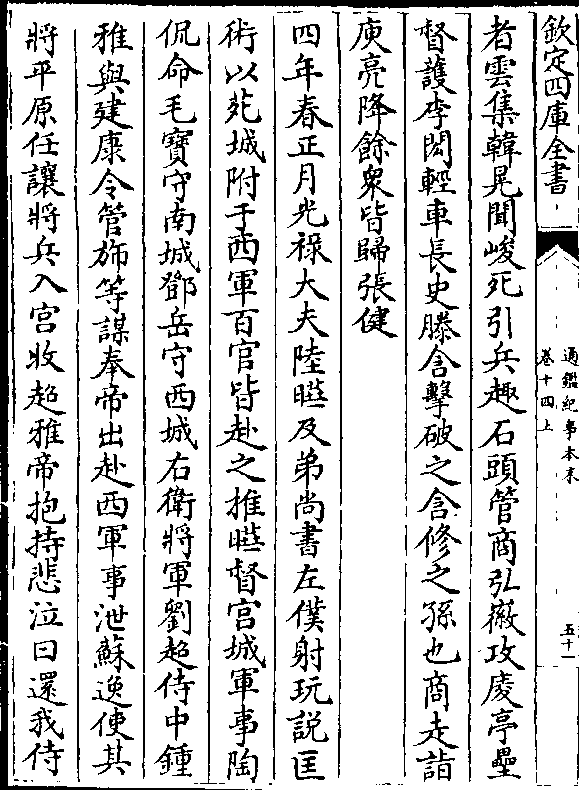 欽定四庫全書
通鑑紀事本末
卷十四上
五十一
者雲集韓晃聞峻死引兵趣石頭管商弘徽攻庱亭壘
督護李閎輕車長史滕含擊破之含修之孫也商走詣
庾亮降餘衆皆歸張健
四年春正月光祿大夫陸曄及弟尚書左僕射玩説匡
術以苑城附于西軍百官皆赴之推曄督宫城軍事陶
侃命毛寶守南城鄧岳守西城右衛將軍劉超侍中鍾
雅與建康令管旆等謀奉帝出赴西軍事泄蘇逸使其
將平原任讓將兵入宫收超雅帝抱持悲泣曰還我侍